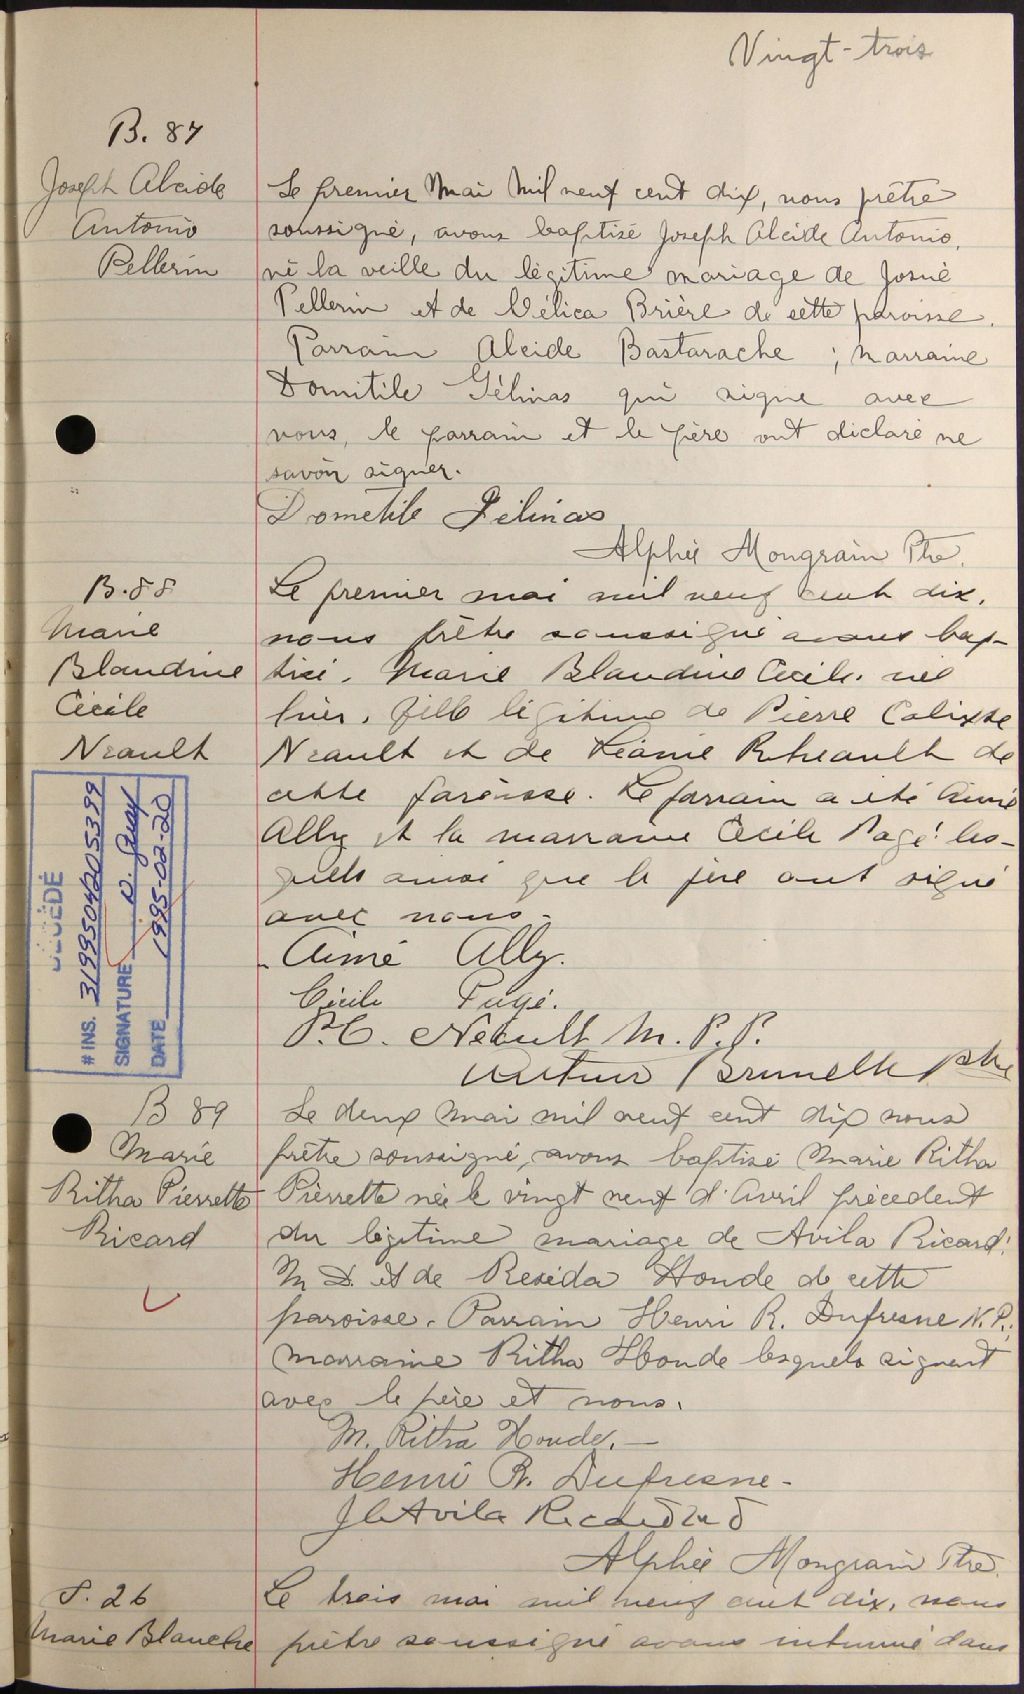 Vingt-trois
B. 87
Joseph Alcide
Antonio
Pellerin
Le premier Mai Mil neuf cent dix, nous prêtre
soussigné, avons baptisé Joseph Alcide Antonio,
né la veille du légitime mariage de Josué
Pellerin et de Délica Brière de cette paroisse.
Parrain Alcide Bastarache ; marraine
Domitile Gélinas qui signe avec
nous, le parrain et le père ont déclaré ne
savoir signer.
Dometile Gelinas
Alphée Mongrain Ptre.
B. 88
Marie
Blandine
Cécile
Neault
Le premier mai mil neuf cent dix,
nous prêtre soussigné avons bap-
tisé, Marie Blandine Cécile, née
hier, fille légitime de Pierre Calixte
Neault et de Léanie Rheault de
cette paroisse. Le parrain a été Aimé
Ally et la marraine Cécile Pagé les-
quels ainsi que le père ont signé
avec nous.
Aimé Ally.
Cécile Pagé.
P.C. Néault M.P.P.
Arthur Brunelle Ptre
DÉCÉDÉ
# INS. 3199504205399
SIGNATURE
DATE 1995-02-20
B 89
Marie
Ritha Pierrette
Ricard
Le deux Mai mil neuf cent dix nous
prêtre soussigné, avons baptisé Marie Ritha
Pierrette née le vingt neuf d'Avril précedent
du légitime mariage de Avila Ricard
M D. et de Reséda Houde de cette
paroisse. Parrain Henri R. Dufresne N.P.;
marraine Ritha Houde lesquels signent
avec le père et nous.
M. Ritha Houde.—
Henri R. Dufresne-
Avila Ricard M D
Alphée Mongrain Ptre.
S. 26
Marie Blanche
Le trois mai mil neuf cent dix, nous
prêtre soussigné avons inhumé dans